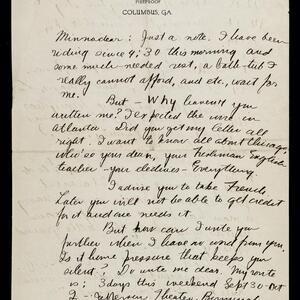 FIREPROOF
COLUMBUS, GA.
Minnadear: Just a note. I have been
riding since 4:30 this morning and
some much-needed rest, a bath-tub I
really cannot afford, and etc, wait for
me!
But - Why haven't you
written me? I expected the word in
Atlanta. Did you get my letter all
right. I want to know all about Chicago,
who've you seen, your Freshman English
teacher - your - Everything.
I advise you to take French.
Later you will not be able to get credit
for it and one needs it.
But how can I write you
further when I have no word from you.
Is it home pressure that keeps you
silent? Do write me dear. My route
is: 3 days this weekend Sept 30 - Oct
2 - Jefferson Theater, Birmingh